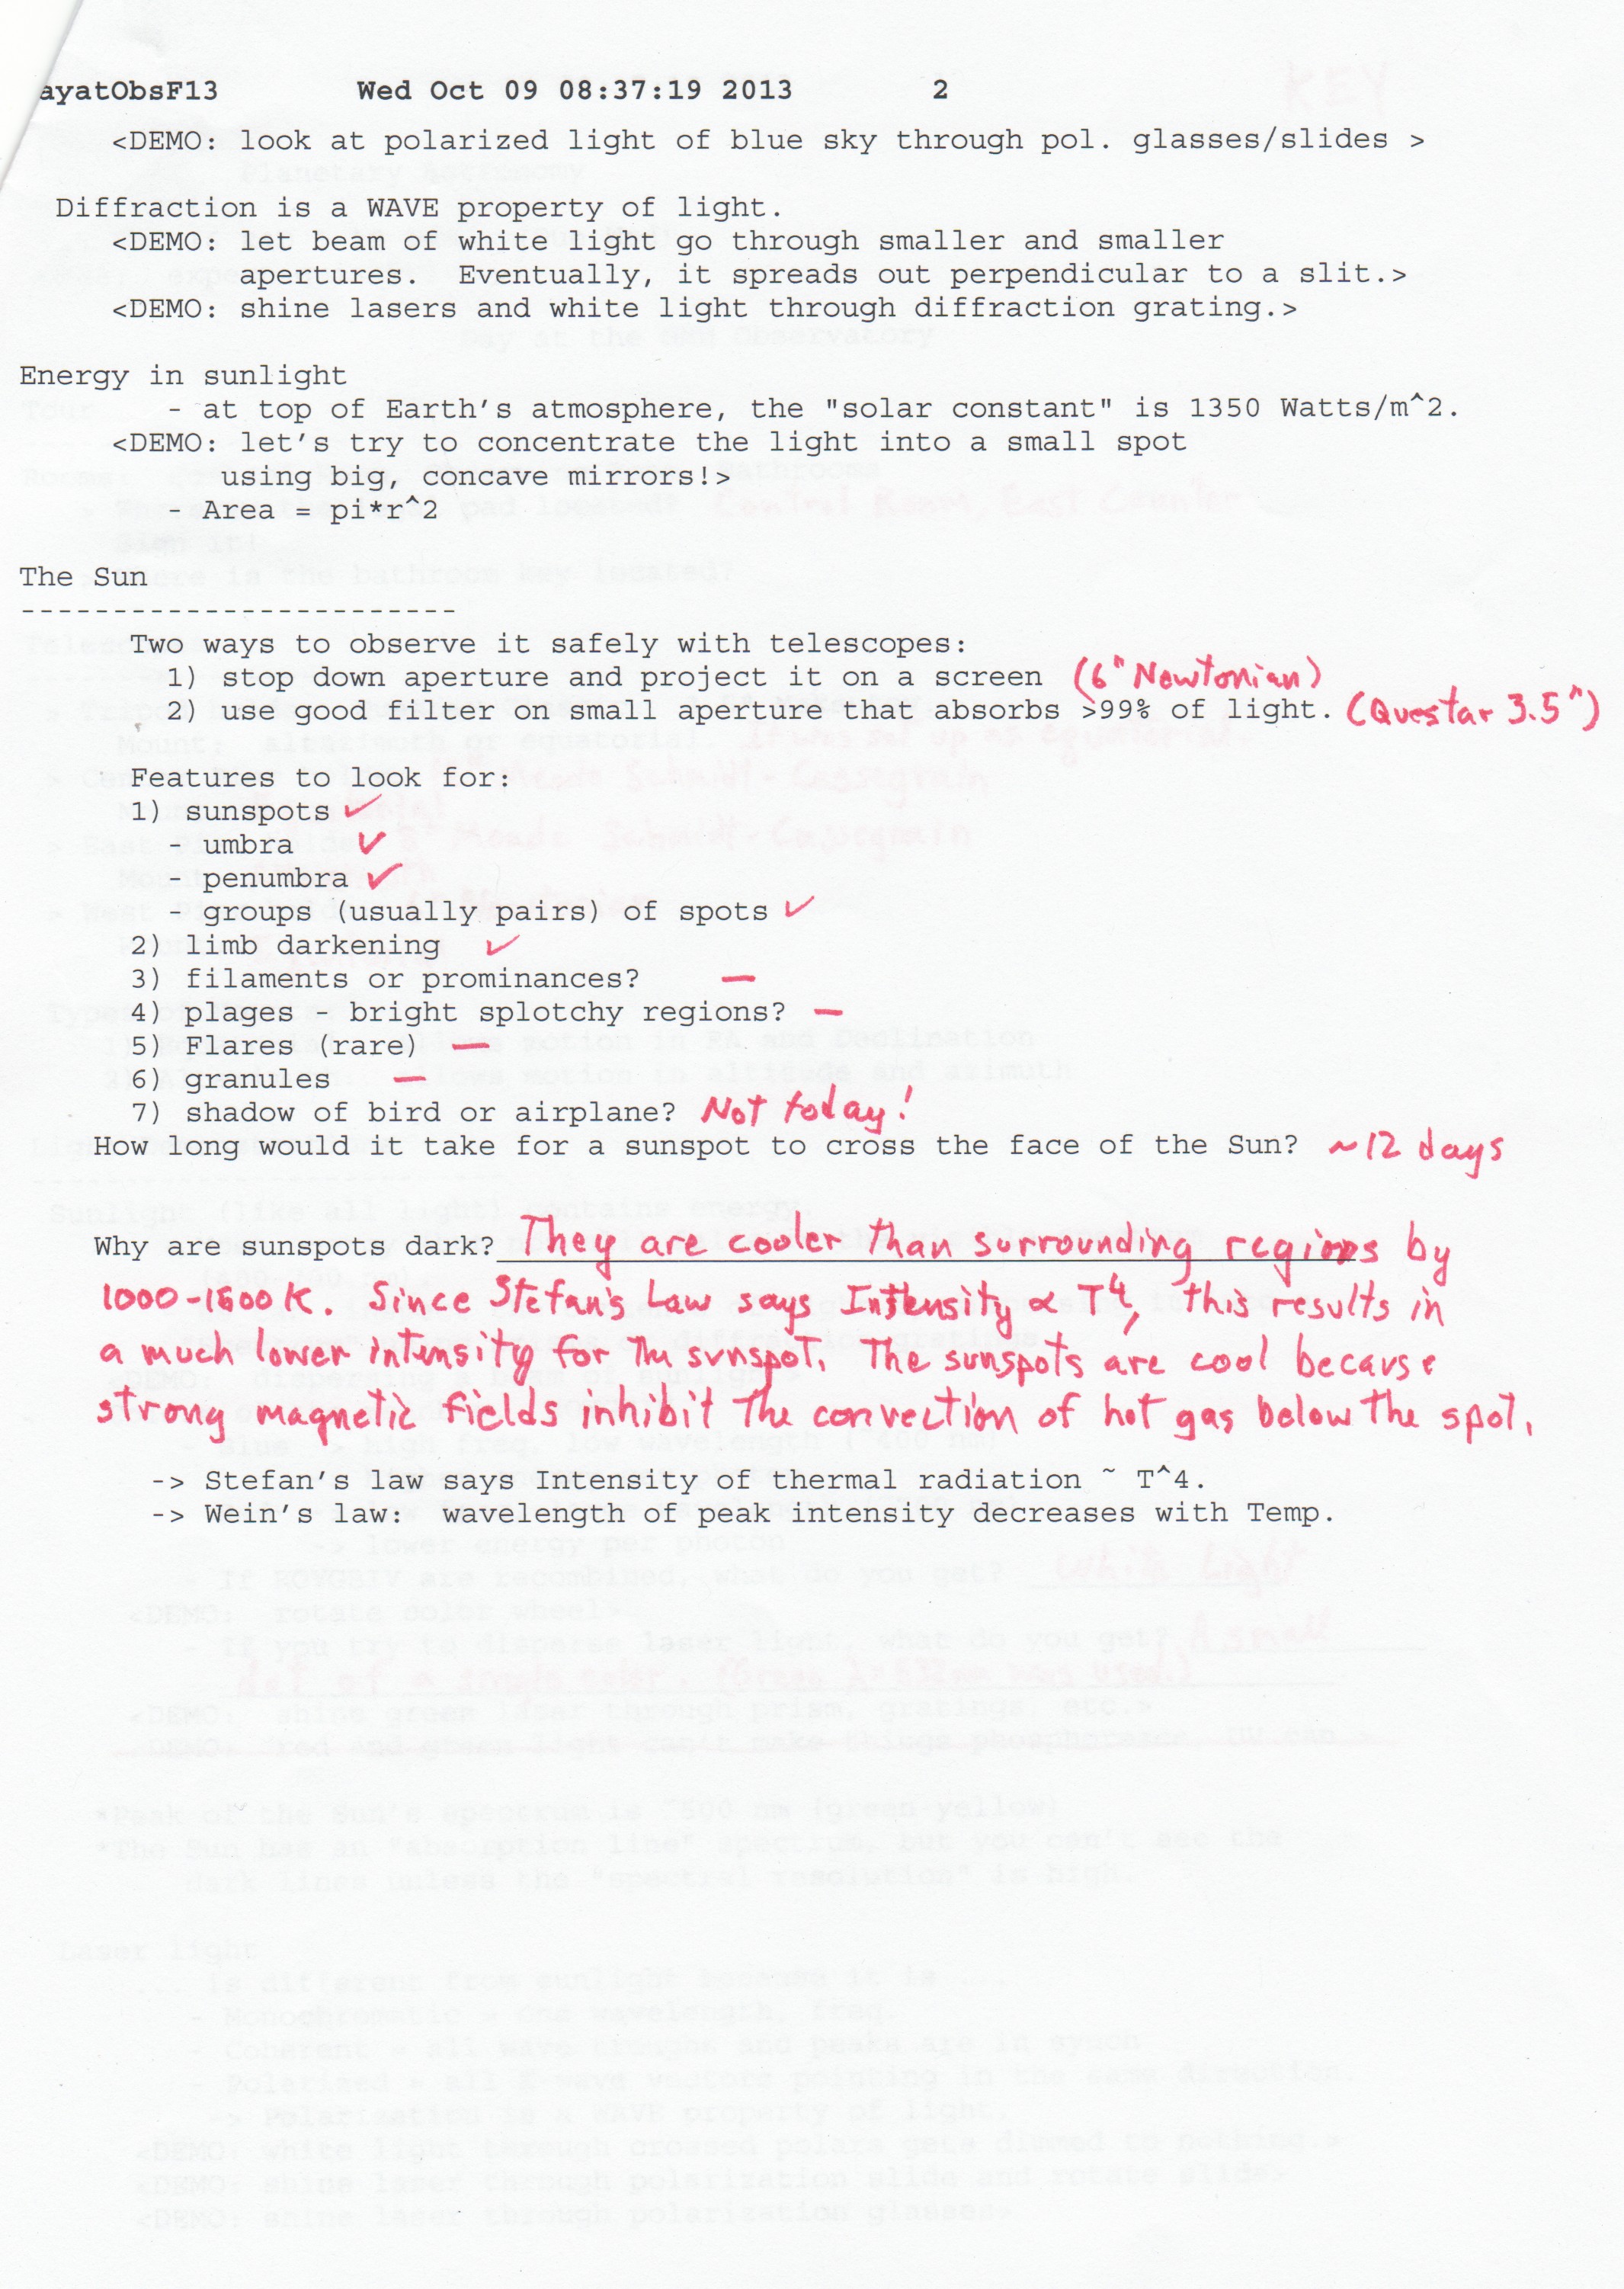 ayatObsF13 Wed Oct 09 08:37:19 2013 2
<DEMO: look at polarized light of blue sky through pol. glasses/slides >
Diffraction is a WAVE property of light.
<DEMO: let beam of white light go through smaller and smaller
apertures. Eventually, it spreads out perpendicular to a slit.>
<DEMO: shine lasers and white light through diffraction grating.>
Energy in sunlight
- at top of Earth's atmosphere, the "solar constant" is 1350 Watts/m^2.
<DEMO: let's try to concentrate the light into a small spot
using big, concave mirrors!>
- Area = pi*r^2
The Sun
------------------------
Two ways to observe it safely with telescopes:
1) stop down aperture and project it on a screen (6" Newtonian)
2) use good filter on small aperture that absorbs >99% of light. (Questar 3.5")
Features to look for:
1) sunspots ✓
- umbra ✓
- penumbra ✓
- groups (usually pairs) of spots ✓
2) limb darkening ✓
3) filaments or prominances? —
4) plages - bright splotchy regions? —
5) Flares (rare) —
6) granules —
7) shadow of bird or airplane? Not today!
How long would it take for a sunspot to cross the face of the Sun? ~12 days
Why are sunspots dark? They are cooler than surrounding regions by
1000-1500K. Since Stefan's Law says Intensity ∝ T^4, this results in
a much lower intensity for the sunspot. The sunspots are cool because
strong magnetic fields inhibit the convection of hot gas below the spot.
-> Stefan's law says Intensity of thermal radiation ~ T^4.
-> Wein's law: wavelength of peak intensity decreases with Temp.